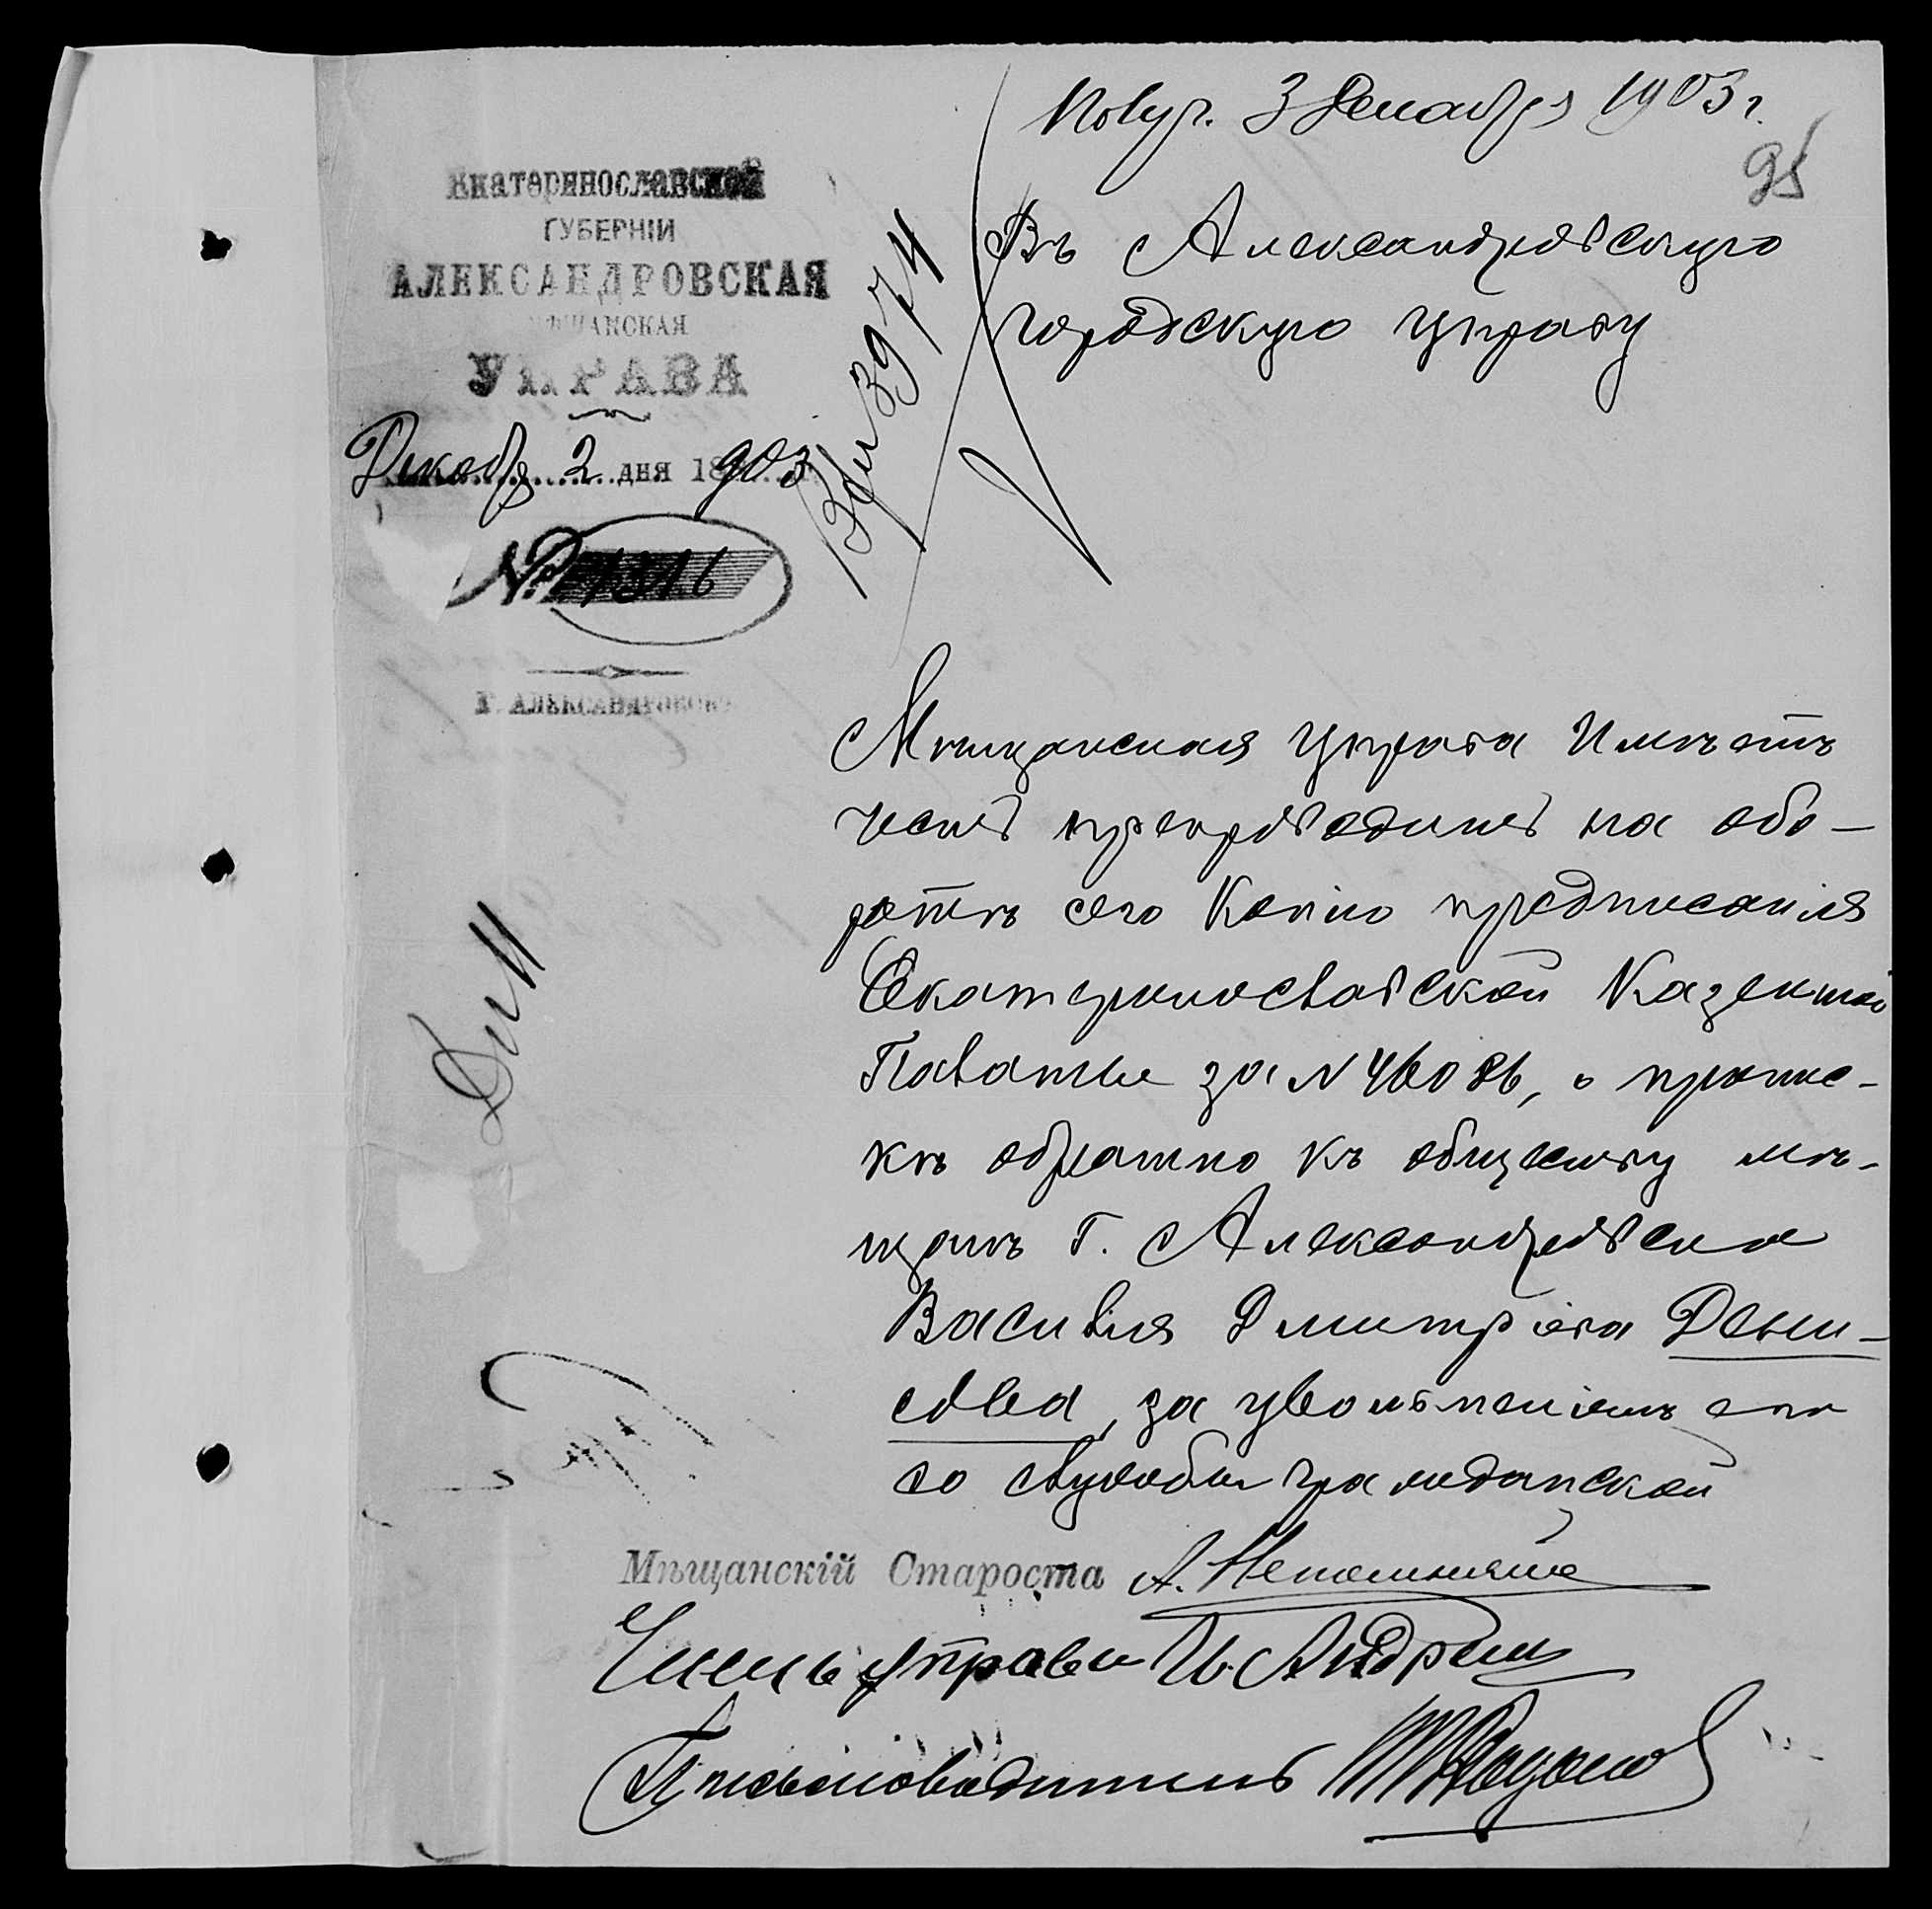 Получ. 3 Декабря 1903 г.
95
Екатеринославской
ГУБЕРНІИ
АЛЕКСАНДРОВСКАЯ
МѢЩАНСКАЯ
УПРАВА
Декабр 2 дня 1903
№ 1816
Г. АЛЕКСАНДРОВСК
3974
Въ Александровскую
городскую управу
Мѣщанская управа Имѣетъ
честь препроводить на обо-
ротѣ сего Копію предписанія
Екатеринославской Казенной
Палаты за № 46086, о припис-
кѣ обратно къ обществу мѣ-
щанъ г. Александровска
Василія Дмитріева Дени-
сова, за увольненіемъ его
со службы гражданской
Мѣщанскій Староста А.
Членъ управы
Письмоводитель